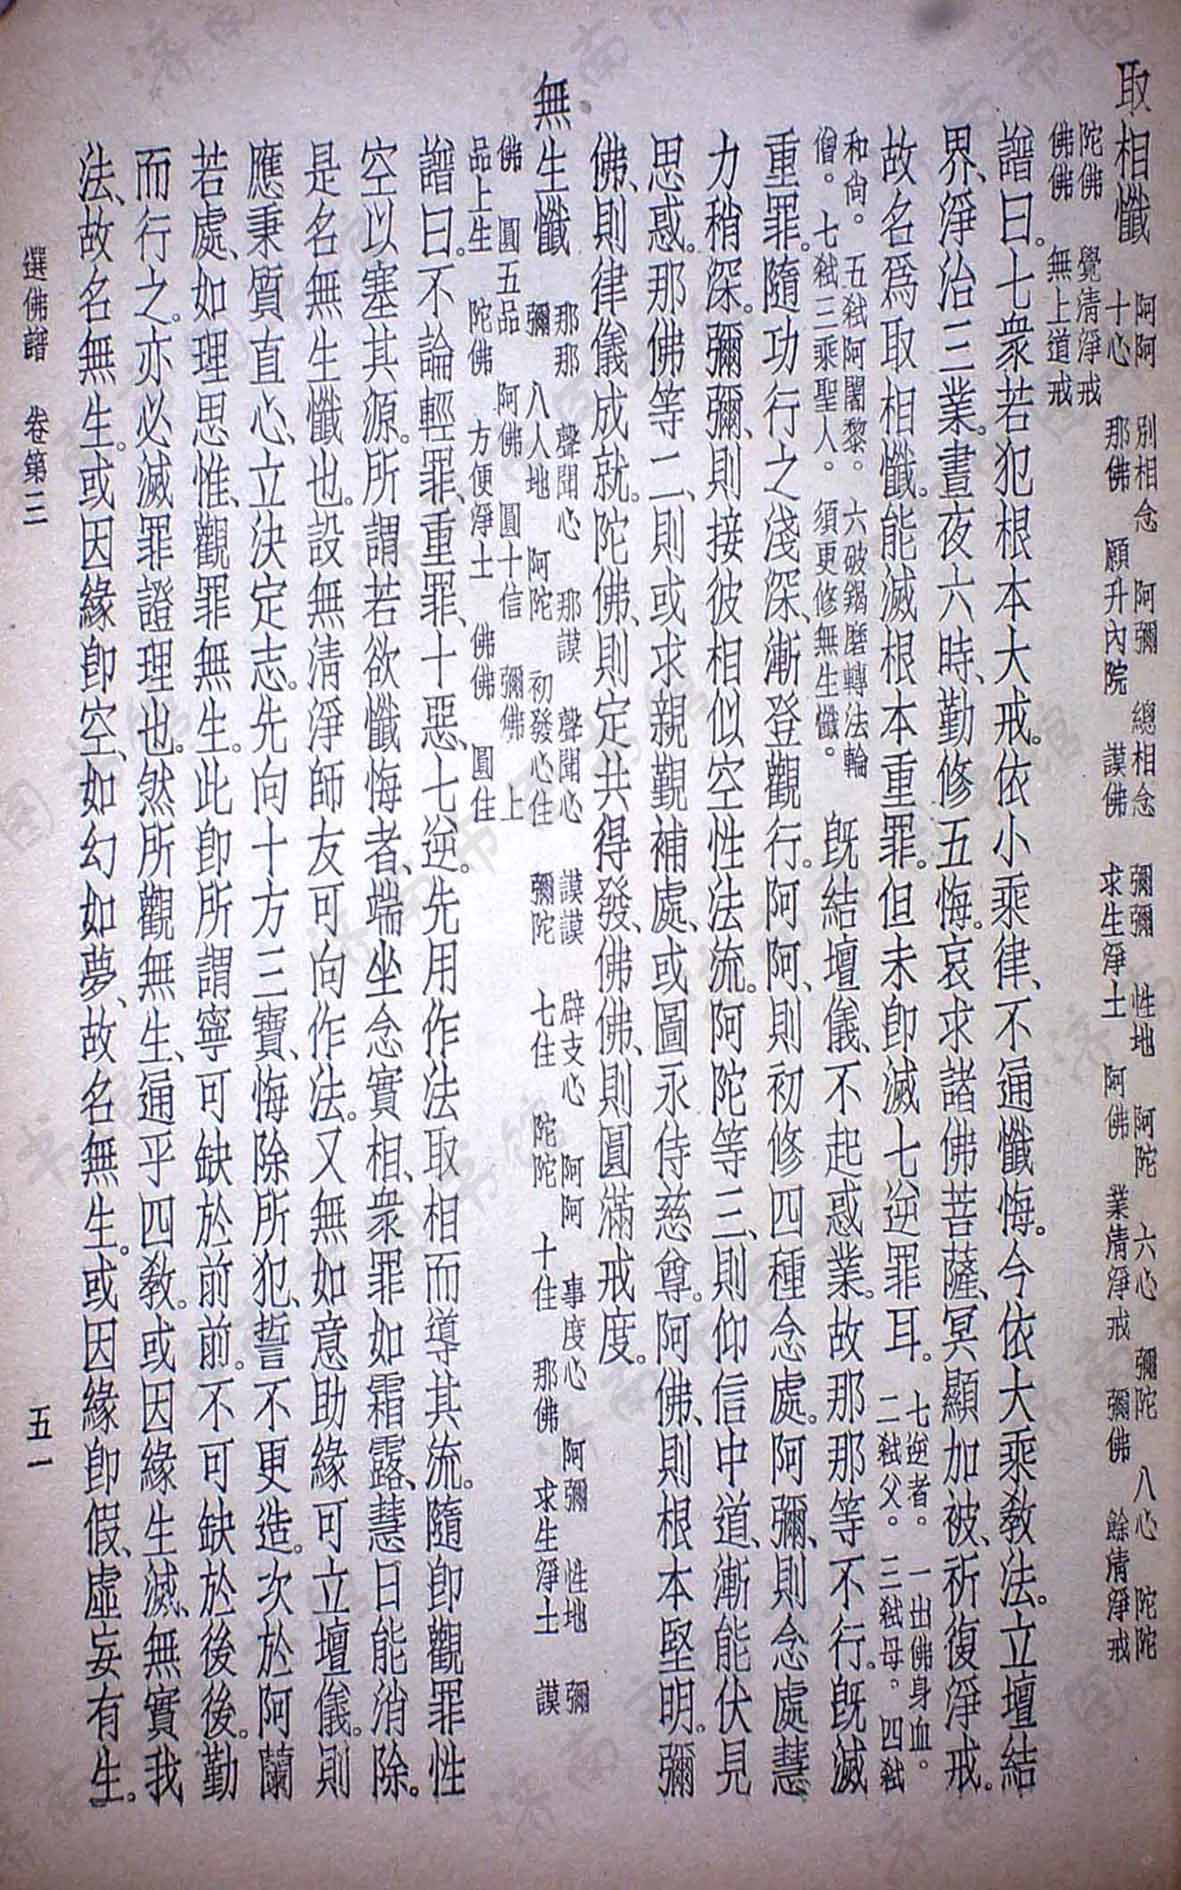 取相懺 阿阿 別相念 阿彌 總相念 彌彌 性地 阿陀 六心 彌陀 八心 陀陀
十心 那佛 願升內院 謨佛 求生淨土 阿佛 業清淨戒 彌佛 餘清淨戒
陀佛 覺清淨戒
佛佛 無上道戒
譜曰。七眾若犯根本大戒。依小乘律、不通懺悔。今依大乘教法。立壇結
界、淨治三業。晝夜六時、勤修五悔。哀求諸佛菩薩、冥顯加被、祈復淨戒。
故名為取相懺。能滅根本重罪。但未即滅七逆罪耳。七逆者。一出佛身血。二弒父。三弒母。四弒
和尚。五弒阿闍黎。六破羯磨轉法輪僧。七弒三乘聖人。須更修無生懺。既結壇儀、不起惑業。故那那等不行。既滅
重罪。隨功行之淺深、漸登觀行。阿阿、則初修四種念處。阿彌、則念處慧
力稍深。彌彌、則接彼相似空性法流。阿陀等三、則仰信中道、漸能伏見
思惑。那佛等二、則或求親覲補處、或圖永侍慈尊。阿佛、則根本堅明。彌
佛、則律儀成就。陀佛、則定共得發、佛佛、則圓滿戒度。
無生懺 那那 聲聞心 那謨 聲聞心 謨謨 辟支心 阿阿 事度心 阿彌 性地 彌
彌 八人地 阿陀 初發心住 彌陀 七住 陀陀 十住 那佛 求生淨土 謨
佛 圓五品 阿佛 圓十信 彌佛 上
品上生 陀佛 方便淨土 佛佛 圓住
譜曰。不論輕罪、重罪、十惡、七逆。先用作法取相而導其流。隨即觀罪性
空以塞其源。所謂若欲懺悔者、端坐念實相、眾罪如霜露、慧日能消除。
是名無生懺也。設無清淨師友可向作法。又無如意助緣可立壇儀。則
應秉質直心、立決定志。先向十方三寶、悔除所犯、誓不更造。次於阿蘭
若處、如理思惟、觀罪無生。此即所謂寧可缺於前前。不可缺於後後。勤
而行之。亦必滅罪證理也。然所觀無生、通乎四教。或因緣生滅、無實我
法、故名無生。或因緣即空、如幻如夢、故名無生。或因緣即假、虛妄有生。
選佛譜 卷第三 五一